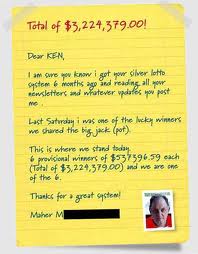 Total of $3,224,379.00!
Dear KEN,
I am sure you know i got your silver lotto
system 6 months ago and reading all your
newsletters and whatever updates you post
me .
Last Saturday i was one of the lucky winners
we shared the big jack (pot).
This is where we stand today.
6 provisional winners of $537396.59 each
(Total of $3,224,379.00) and we are one
of the 6.
Thanks for a great system!
Maher M